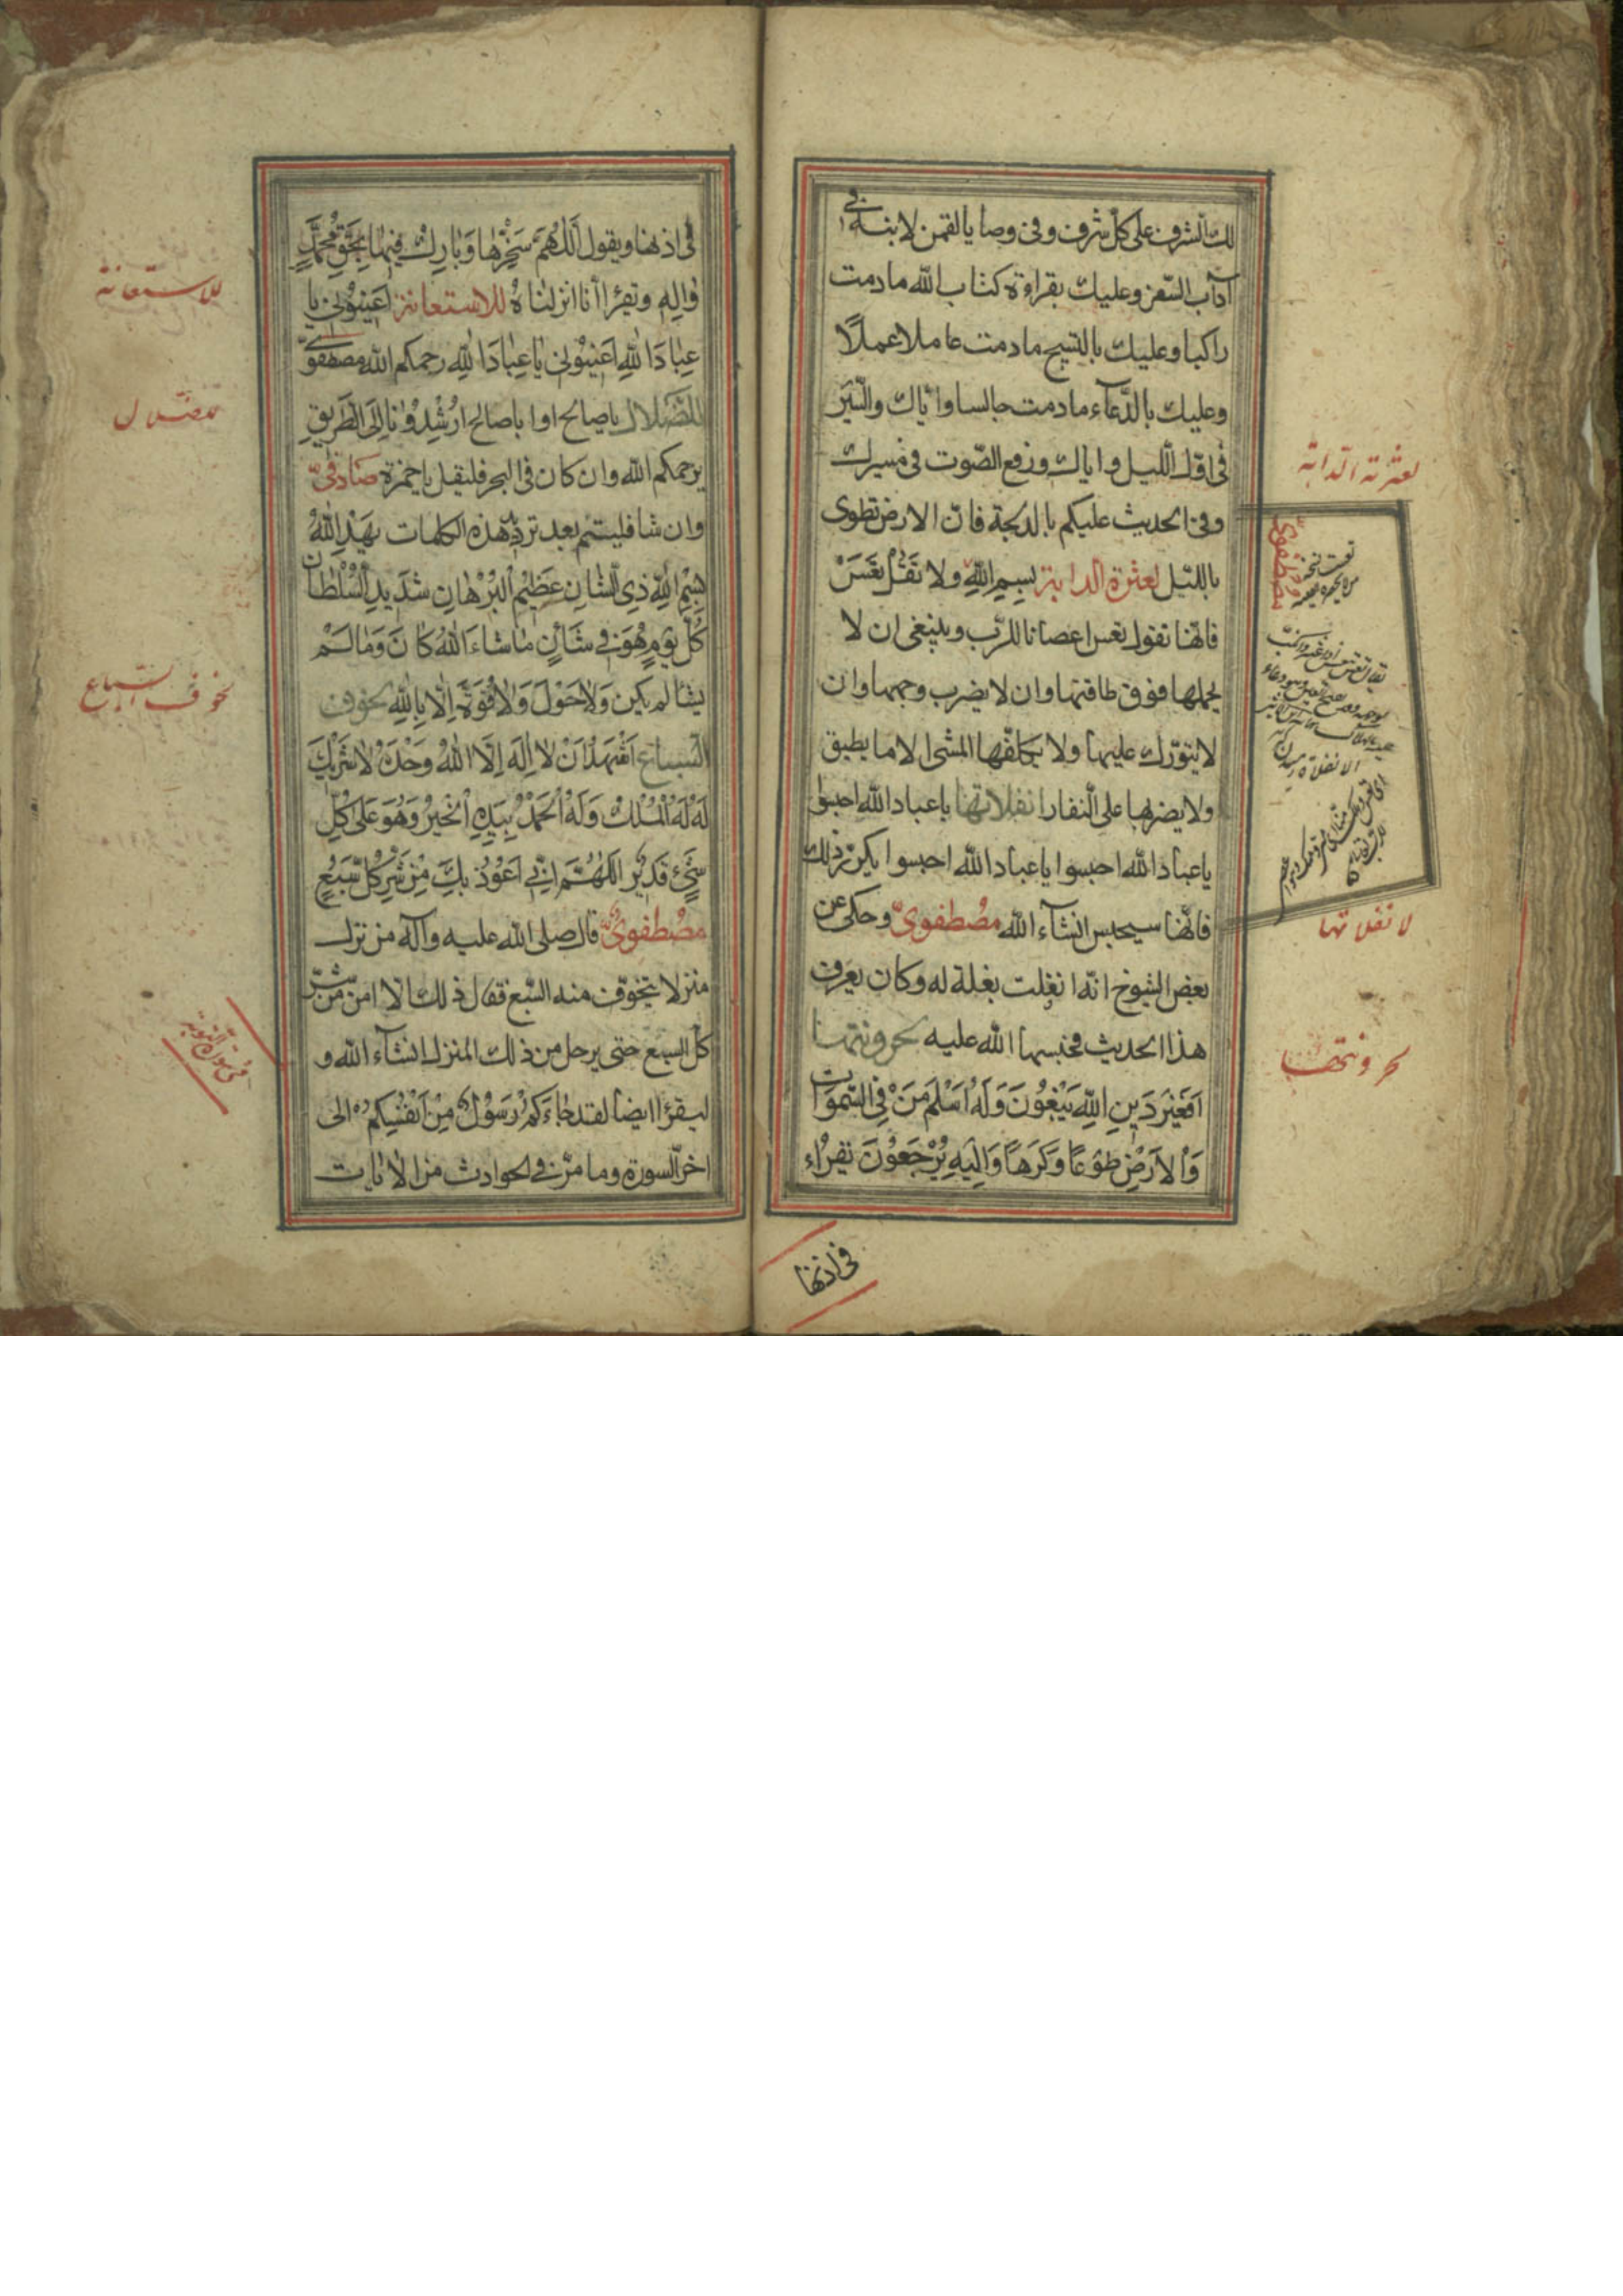 لك الشرف على كل شرف وفي وصايا لقمن لابنه في
آداب السفر وعليك بقراءة كتاب الله ما دمت
راكبا وعليك بالتسبيح ما دمت عاملا عملًا
وعليك بالدّعآء ما دمت جالسا وايّاك والسّير
في اوّل اللّيل واياك ورفع الصّوت في مسيرك
وفي الحديث عليكم بالدلجة فانّ الارض تطوى
بالليل لعثرة الدابة بسم الله ولا تقل تعس
فانّها تقول تعس اعصانا للرّب وينبغي ان لا
يحملها فوق طاقتها وان لا يضرب وجهها وان
لا يتورّك عليها ولا يكلفها المشي الا ما يطيق
ولا يضربها على النفار انفلاتها يا عباد الله احبسوا
يا عباد الله احبسوا يا عباد الله احبسوا يكرّر ذلك
فانّها سيحبس انشآء الله مصطفويّ وحكى عن
بعض الشيوخ انّه انفلتت بغلة له وكان يعرف
هذا الحديث فحبسها الله عليه لحرونتها
اَفَغَيْرَ دَينِ اللّهِ يَبْغُونَ وَلَهُ اَسْلَمَ مَنْ فِي السَّموَاتِ
وَالاَرْضِ طَوْعًا وَكَرْهًا وَاِلَيْهِ يُرْجَعُونَ تقراء
في اذنها
لعثرته الدابة
مصطفويّ
لانفلاتها
لحرونتها
في اذنها ويقول اَللّهُمَّ سَخِّرْها وَبارِكْ فيها بِحَقِّ مُحَمَّدٍ
وَالِهِ وتقرأ انا انزلناهُ للاستعانة اَعينُوني يا
عِبادَ اللهِ اَعينُوني يا عِبادَ اللهِ رحمكم الله مصطفويّ
للضّلال يا صالح او يا با صالح ارْشِدُونا اِلَى الطَّريقِ
يرحمكم الله وان كان في البحر فليقل يا حمزة صادقيّ
وان شا فليتيمم بعد تردّ هذه الكلمات بِهَذِ اللهُ
بِسْمِ اللهِ ذِي الشَّانِ عَظيمِ الْبُرْهانِ شَدَيدِ السُّلْطانِ
كُلَّ يَوْمٍ هُوَ في شَأنٍ ماشاءَ اللهُ كانَ وَمالَمْ
يشأ لم يكن وَلاحَوْلَ وَلا قُوَّةَ اِلّا بِاللهِ لخوف
السباع اَشْهَدُ اَنْ لا اِلهَ اِلَّا اللهُ وَحْدَهُ لا شَريكَ
لَهُ لَهُ الْمُلْكُ وَلَهُ الْحَمْدُ بِيَدِهِ الْخَيْرُ وَهُوَ عَلى كُلِّ
شَيْءٍ قَديُر اللّهُمَّ اِنّي اَعُوُذ بِكَ مِنْ شَرِّ كُلِّ سَبُعٍ
مصْطَفويٌّ قال صلى الله عليه وآله من نزل
منزلا يتخوّف منه السّبع فقال ذلك الّا امن من شرّ
كلّ السبع حتى يرحل من ذلك المنزل انشآء الله و
ليقرأ ايضا لقد جاءَكم رَسُولٌ مِنْ اَنْفُسِكُم الى
اخر السورة وما مرّ في الحوادث من الايات
للاستعانة
للضّلال
لخوف السّباع